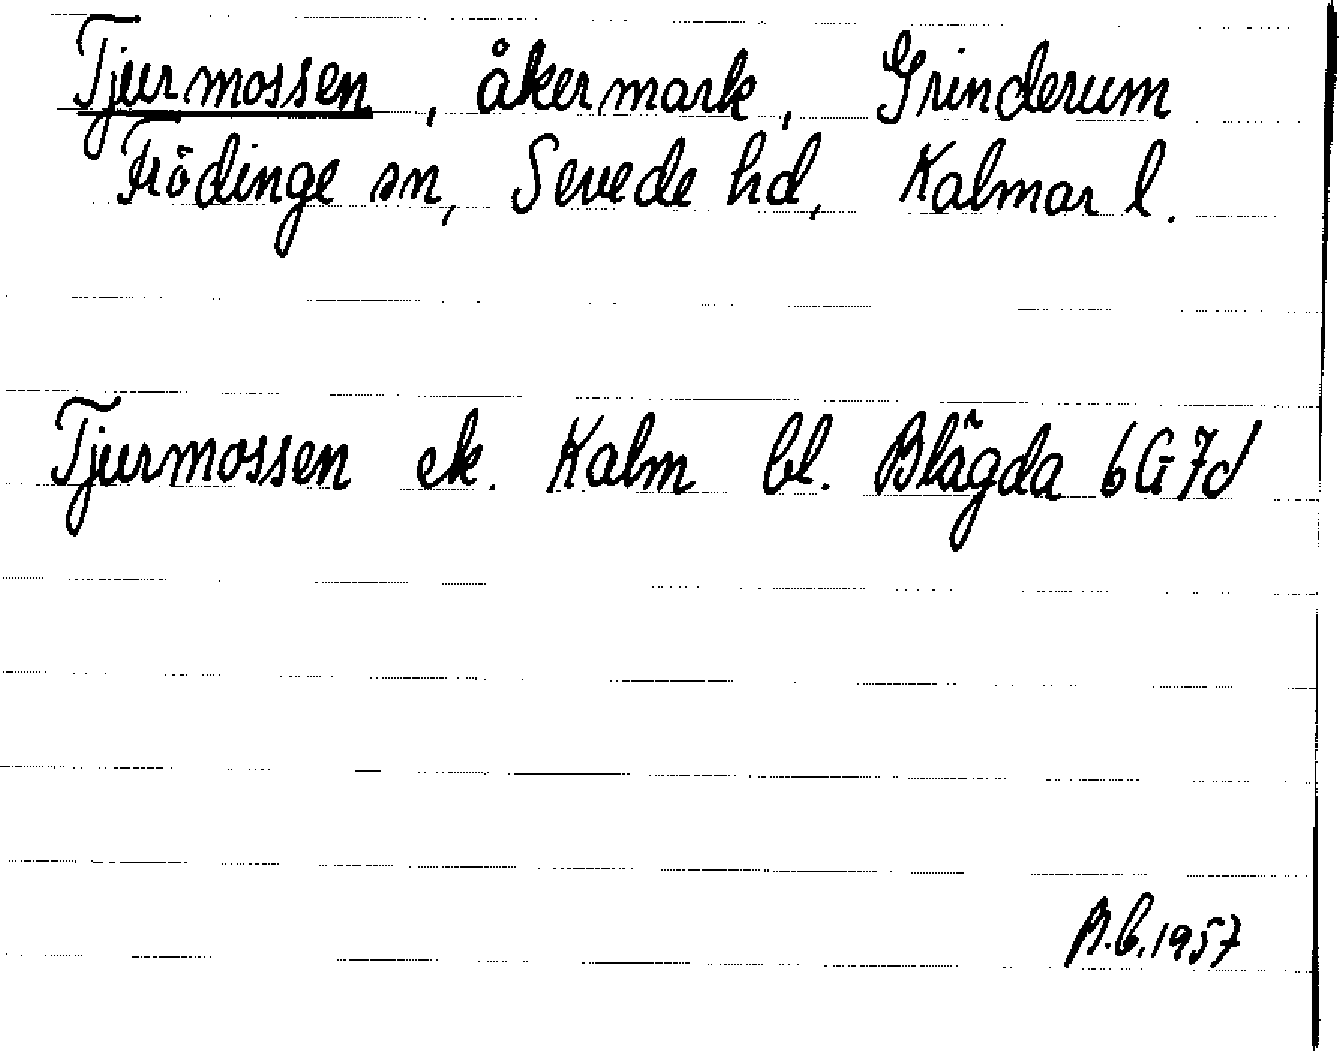 Tjurmossen, åkermark, Grinderum
Frödinge sn, Sevede hd, Kalmar l.
Tjurmossen ek. Kalm bl. Blägda 6G7d
B.b.1957